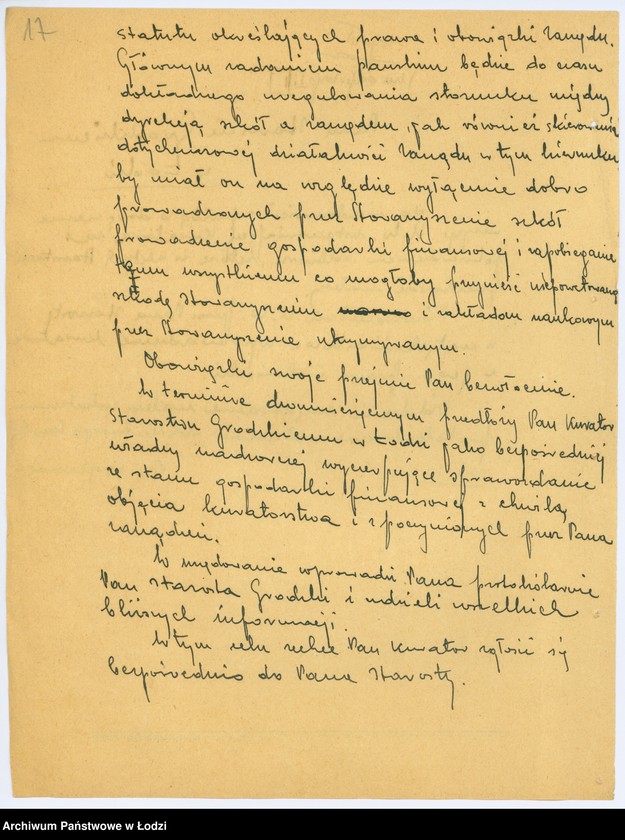 17
statutu określających prawa i obowiązki Zarządu.
Głównym zadaniem pańskim będzie do czasu
dokładnego uregulowania stosunku między
dyrekcją szkół a zarządem, jak również skierowania
dotychczasowej działalności Zarządu w tym kierunku,
by miał on na względzie wyłącznie dobro
prowadzonych przez Stowarzyszenie szkół
prowadzenie gospodarki finansowej i zapobieganie
temu wszystkiemu co mogłoby przynieść niepowetowaną
szkodę Stowarzyszeniu i zakładom naukowym
przez Stowarzyszenie utrzymywanym.
Obowiązki swoje przejmie Pan bezzwłocznie.
W terminie dwumiesięcznym przedłoży Pan Kurator
Starostwu Grodzkiemu w Łodzi jako bezpośredniej
władzy nadzorczej wyczerpujące sprawozdanie
ze stanu gospodarki finansowej z chwilą
objęcia kuratorstwa i z poczynionych przez Pana
zarządzeń.
W urzędowanie wprowadzi Pana protokólarnie
Pan Starosta Grodzki i udzieli wszelkich
bliższych informacji.
W tym celu zechce Pan Kurator zgłosić się
bezpośrednio do Pana Starosty.
Archiwum Państwowe w Łodzi